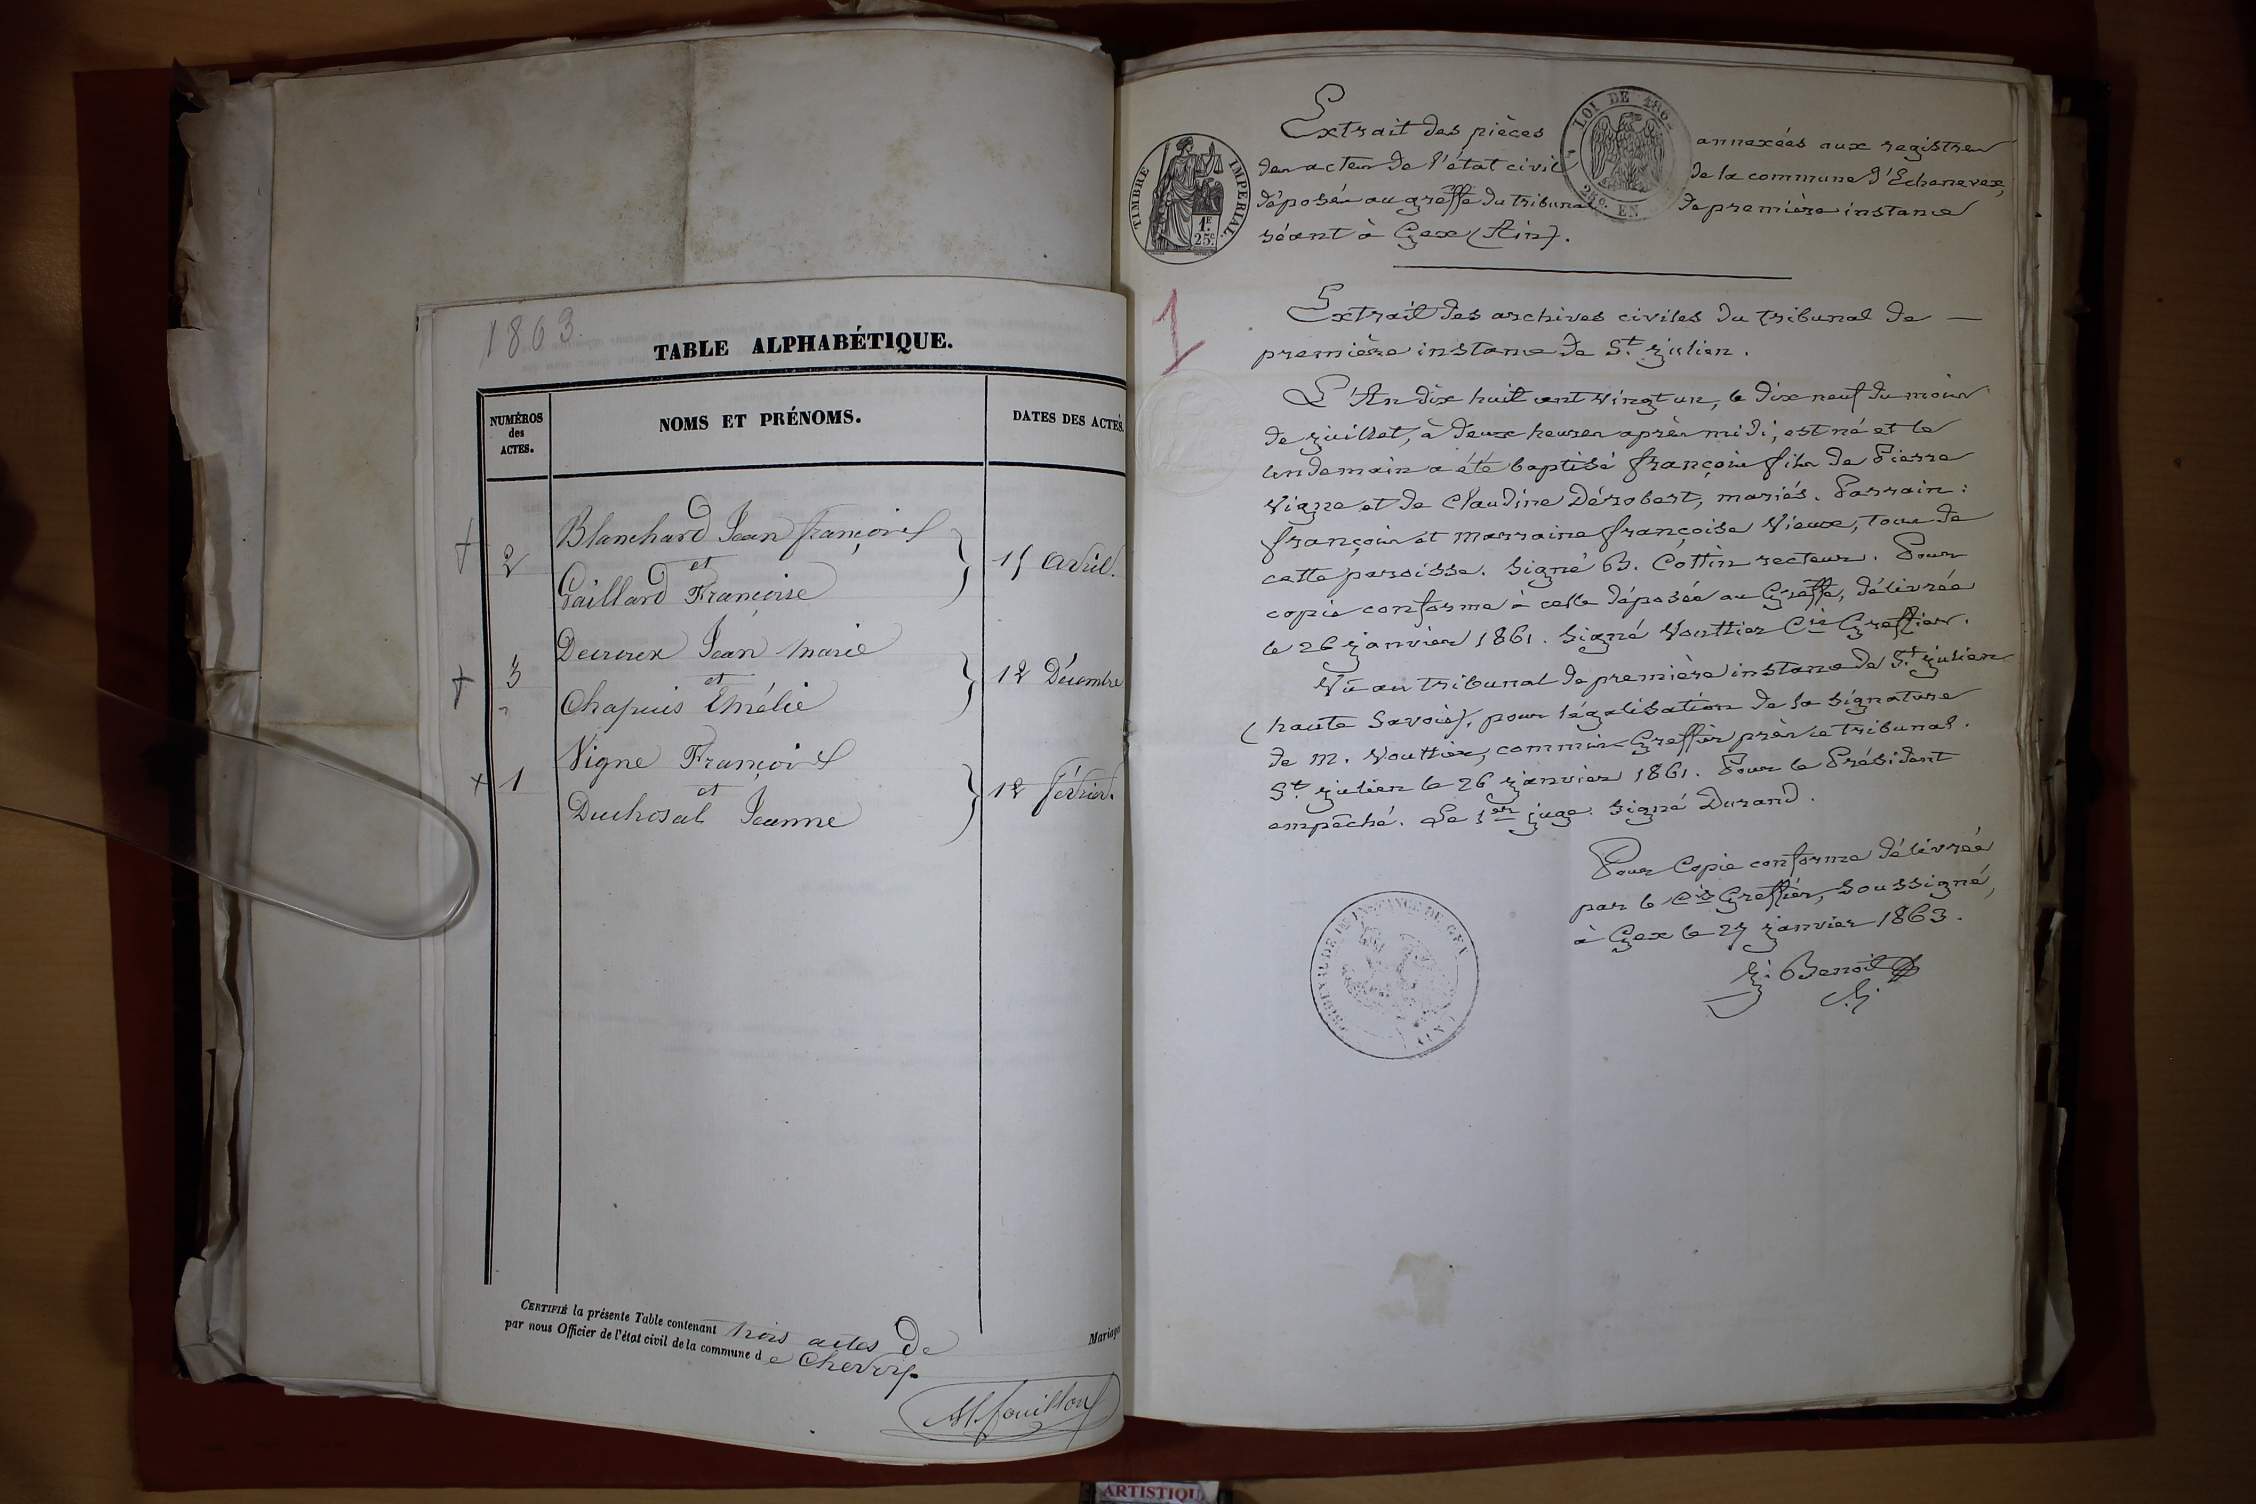 1863.
TABLE ALPHABÉTIQUE.
NUMÉROS
des
ACTES.
NOMS ET PRÉNOMS.
DATES DES ACTES.
Blanchard Jean françois
2 et 15 Avril.
Gaillard Françoise
Decroux Jean Marie
3 et 12 Décembre
Chapuis Emélie
Vigne François
1 et 12 février.
Duchosal Jeanne
CERTIFIÉ la présente Table contenant trois actes de Mariages
par nous Officier de l'état civil de la commune de Chevry.
TIMBRE IMPÉRIAL.
1F.
25C.
LOI DE 1862
2 10. EN
Extrait des pièces annexées aux registres
des actes de l'état civil de la commune d'Echenevex,
déposés au greffe du tribunal de première instance
séant à Gex (Ain).
1
Extrait des archives civiles du tribunal de —
première instance de St. Julien.
L'An dix huit cent vingt un, le dix neuf du mois
de juillet, à deux heures après midi, est né et le
lendemain a été baptisé françois fils de Pierre
Vigne et de Claudine Dérobert, mariés. Parrain:
françois et marraine françoise Vieux, tous de
cette paroisse. Signé B. Cottin recteur. Pour
copie conforme à celle déposée au Greffe, délivrée
le 26 janvier 1861. Signé Vouttier Cis Greffier.
Vu au tribunal de première instance de St. Julien
(haute Savoie), pour légalisation de la signature
de M. Vouttier, commis Greffier près ce tribunal.
St. Julien le 26 janvier 1861. Pour le Président
empêché. Le 1er juge. Signé Durand.
Pour Copie conforme délivrée
par le Cis Greffier, soussigné,
à Gex le 27 janvier 1863.
J. Benoit
TRIBUNAL DE 1RE INSTANCE DE GEX
(AIN)
ARTISTIQU